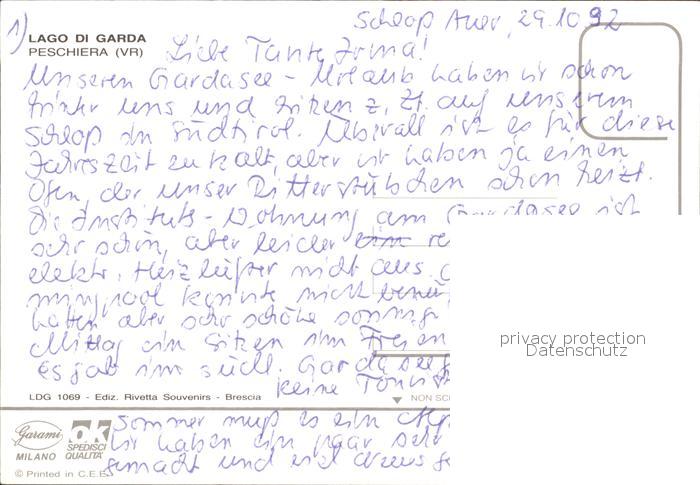 1)
Schloß Auer, 29.10.92
LAGO DI GARDA
PESCHIERA (VR)
Liebe Tante Irma!
Unseren Gardasee-Urlaub haben wir schon
hinter uns und sitzen z. Zt. auf unserem
Schloß in Südtirol. Überall ist es für diese
Jahreszeit zu kalt, aber wir haben ja einen
Ofen, der unser Ritterstübchen schön heizt.
Die Instituts-Wohnung am Gardasee ist
sehr schön, aber leider
elektr. Heizlüfter nicht aus.
mingpool konnte nicht
hatten aber sehr schöne sonnige
Mittag ein Sitzen im Freien
Es gab im südl. Gardasee
keine
LDG 1069 - Ediz. Rivetta Souvenirs - Brescia
NON SC
Sommer muß es ein
Wir haben ein paar sehr
gemacht und viel
Garami
MILANO
OK
SPEDISCI
QUALITÀ
© Printed in C.E.E.
privacy protection
Datenschutz